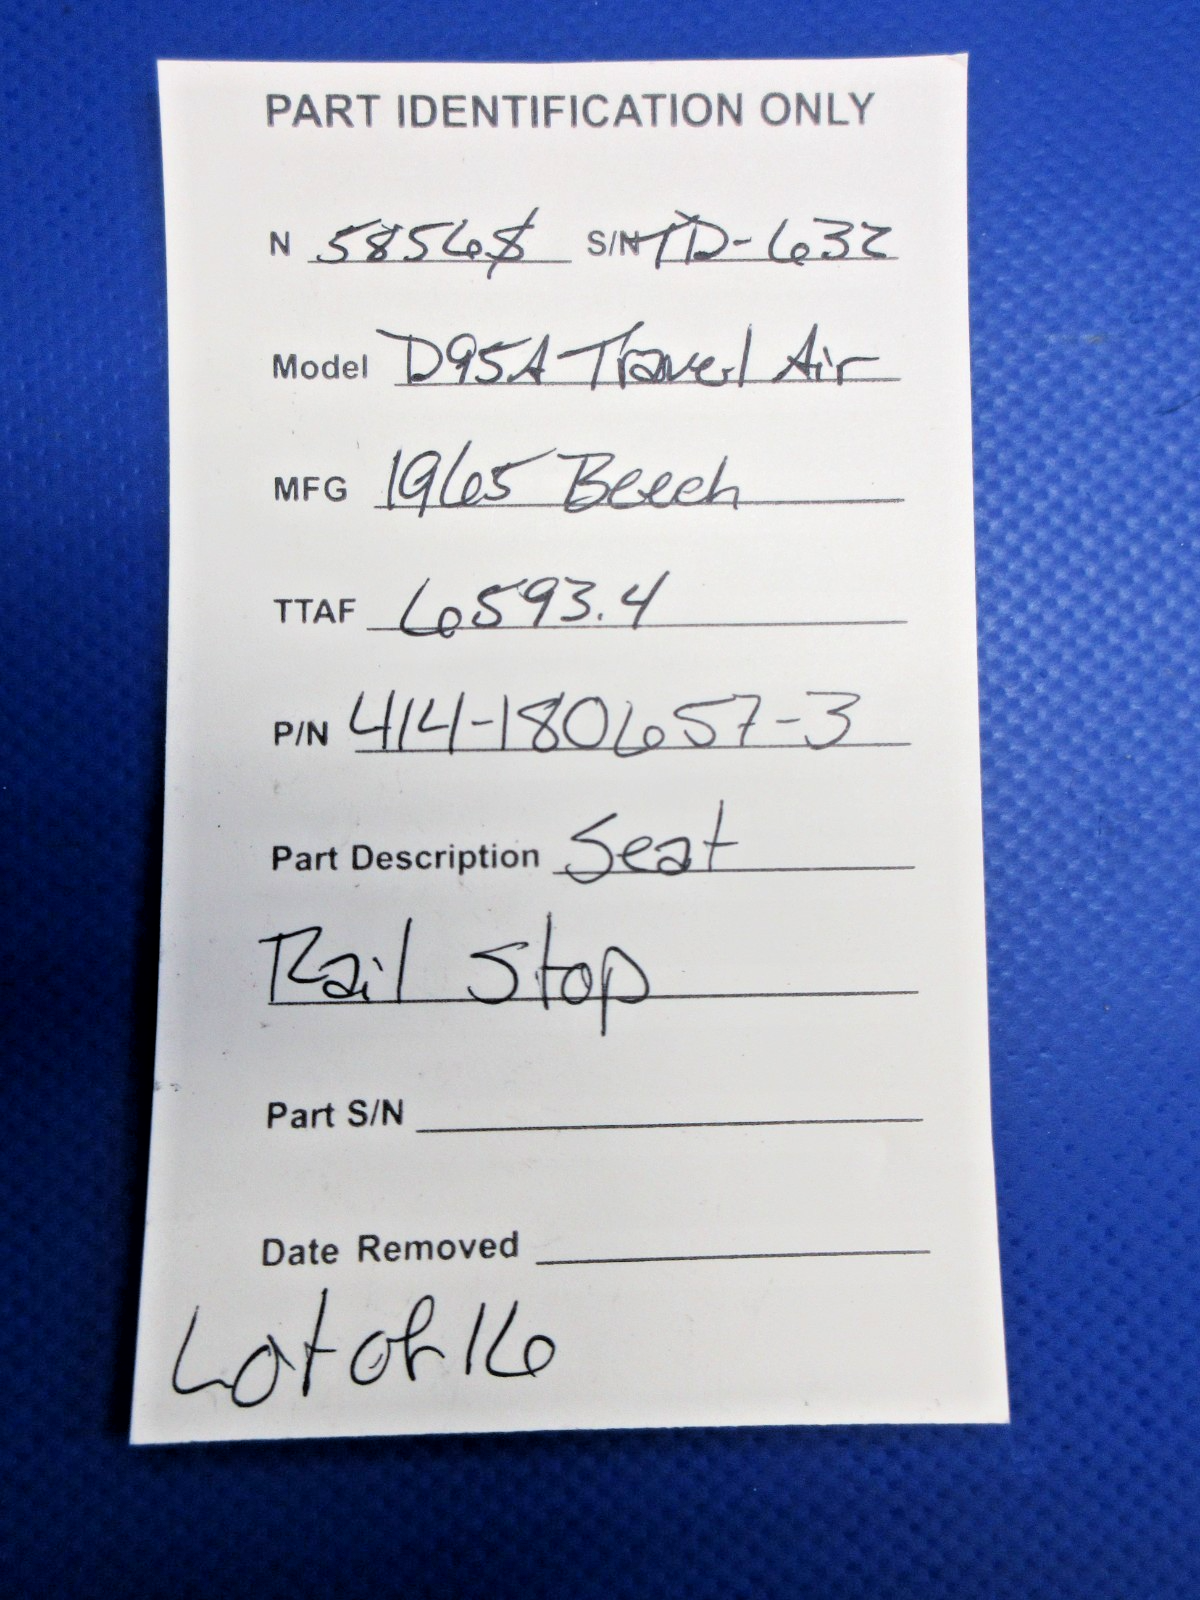 PART IDENTIFICATION ONLY
N 5856S S/N TD-632
Model D95A Travel Air
MFG 1965 Beech
TTAF 6593.4
P/N 414-180657-3
Part Description Seat
Rail Stop
Part S/N
Date Removed
Lot of 16